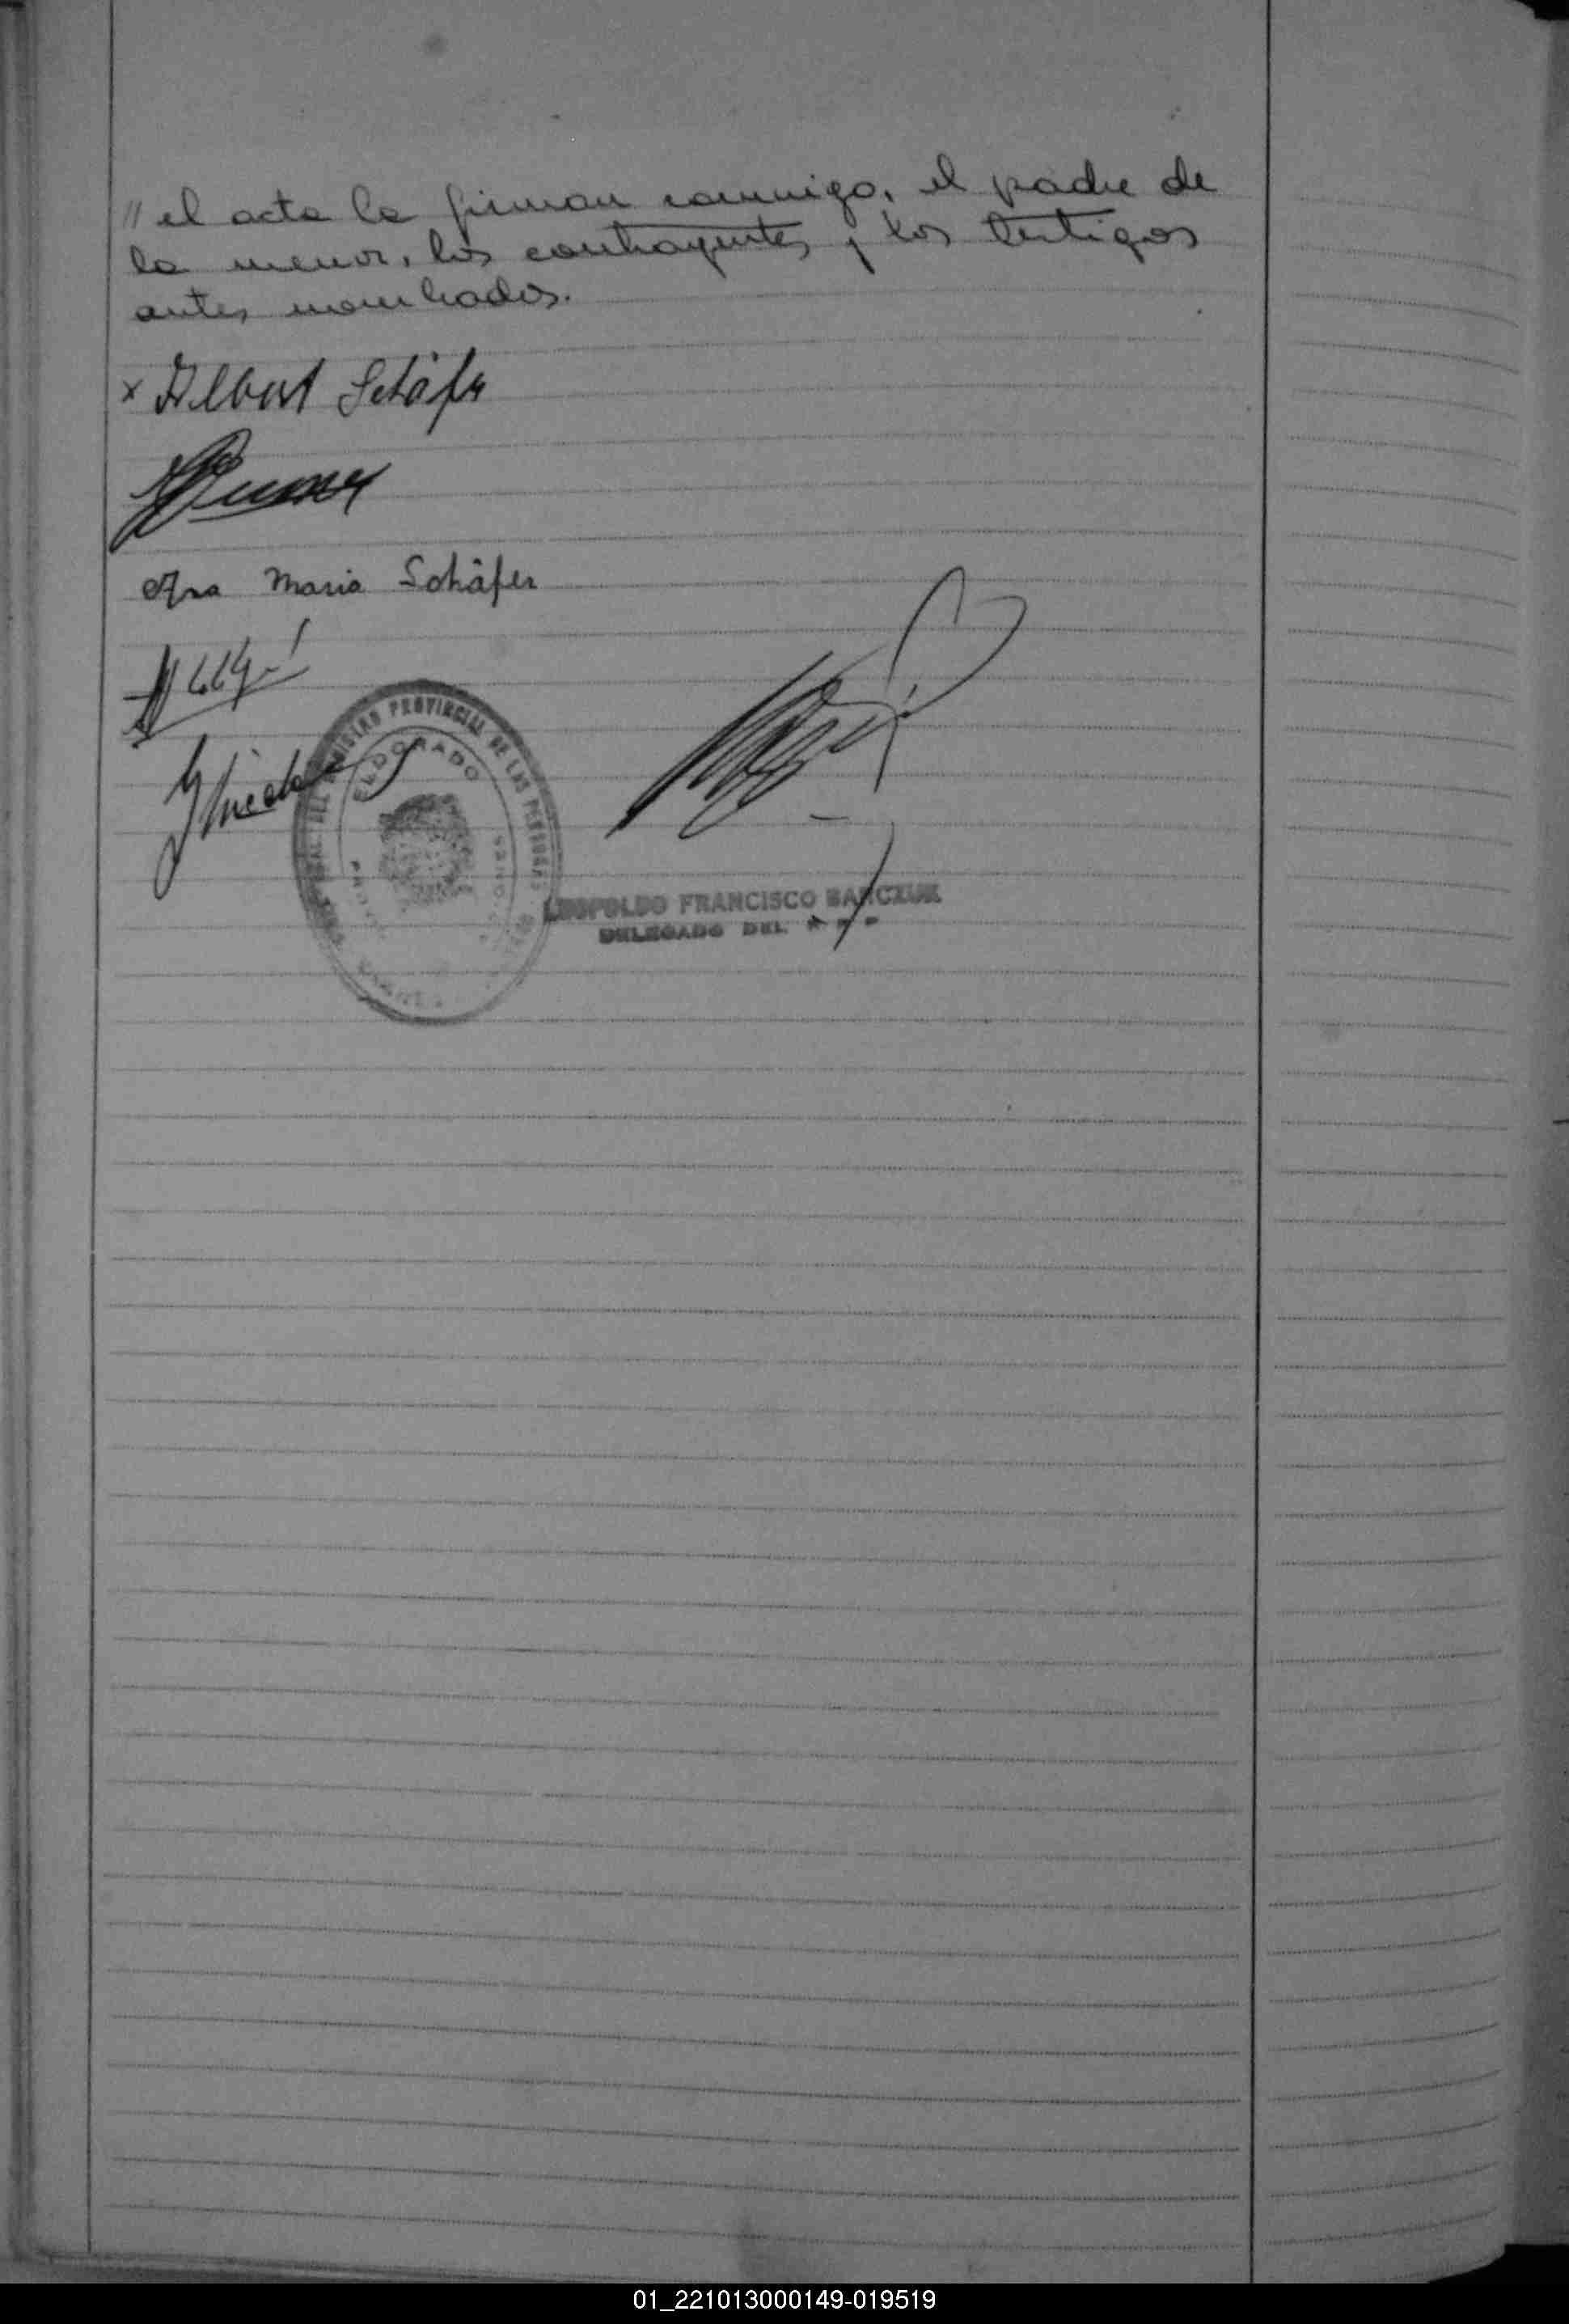 // el acta la firman conmigo, el padre de
la menor, los contrayentes y los testigos
antes nombrados.
x Albert Schäfer
Ana Maria Schäfer
REGISTRO PROVINCIAL DE LAS PERSONAS
ELDORADO
LEOPOLDO FRANCISCO BARCZUK
DELEGADO DEL
01_221013000149-019519